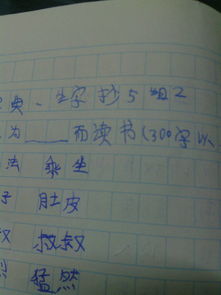 典、生字抄5组2
为____而读书(300字以
法 乘坐
子 肚皮
叔 叔叔
猛然